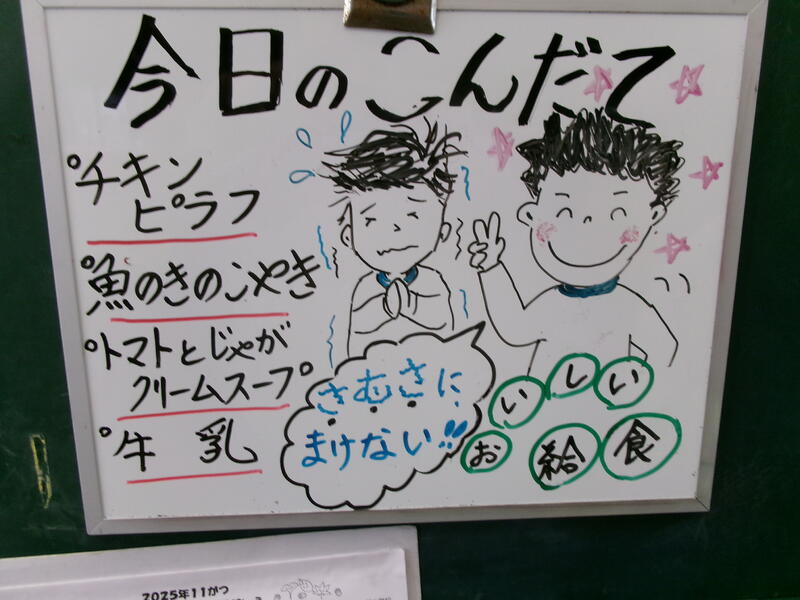 今日のこんだて
°チキン
ピラフ
°魚のきのこやき
°トマトとじゃが
クリームスープ
°牛乳
さむさに
まけない!!
おいしい
給食
2025年11がつ